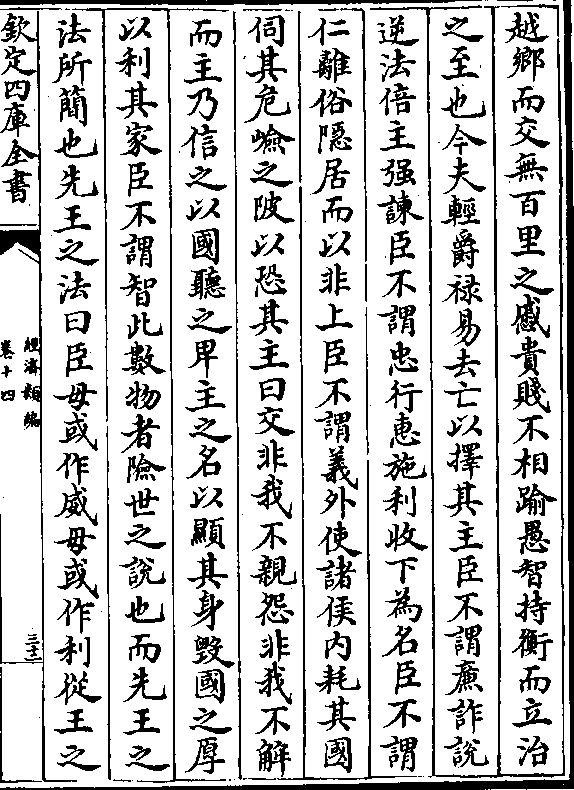 越鄉而交無百里之慼貴賤不相踰愚智持衡而立治
之至也今夫輕爵禄易去亡以擇其主臣不謂亷詐說
逆法倍主强諫臣不謂忠行惠施利收下為名臣不謂
仁離俗隠居而以非上臣不謂義外使諸侯内耗其國
伺其危嶮之陂以恐其主曰交非我不親怨非我不解
而主乃信之以國聽之卑主之名以顯其身毁國之厚
以利其家臣不謂智此數物者險世之說也而先王之
法所簡也先王之法曰臣毋或作威毋或作利從王之
欽定四庫全書
經濟類編
卷十四
三十二